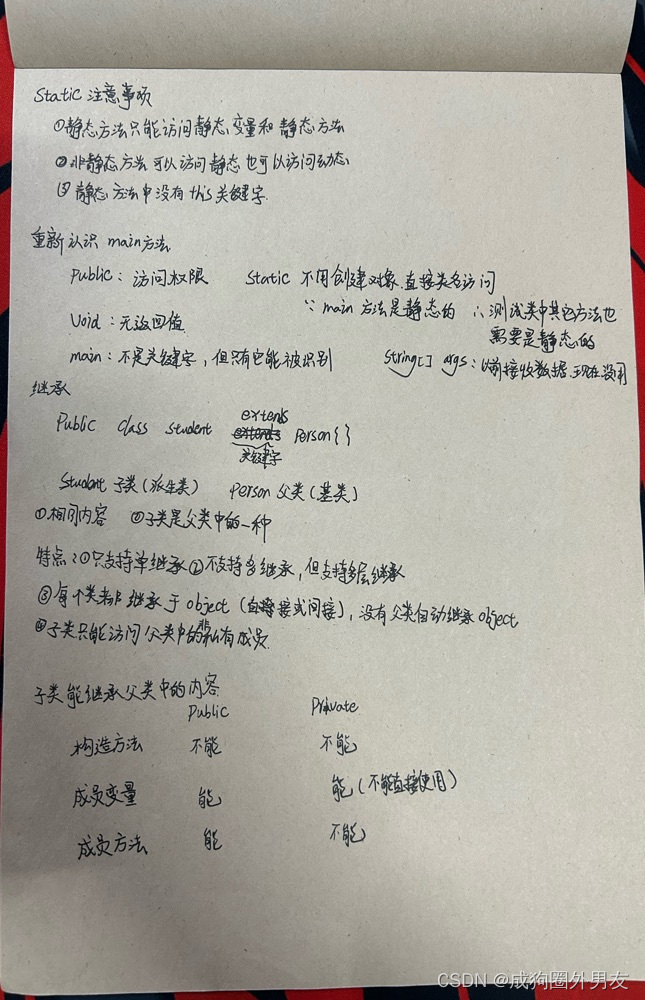 Static 注意事项
①静态方法只能访问静态变量和静态方法
②非静态方法可以访问静态也可以访问动态
③静态方法中没有this关键字.
重新认识 main方法
Public：访问权限 Static 不用创建对象.直接类名访问
∵ main 方法是静态的 ∴ 测试类中其它方法也
需要是静态的
Void：无返回值.
main：不是关键字，但只有它能被识别 String[] args：以前接收数据.现在没用
继承
extends
Public class student extends Person{}
关键字
Student 子类(派生类) Person 父类(基类)
①相同内容 ②子类是父类中的一种
特点：①只支持单继承②不支持多继承，但支持多层继承
③每个类都继承于object(直接或间接)，没有父类自动继承object
④子类只能访问父类中的非私有成员.
子类能继承父类中的内容
Public Private
构造方法 不能 不能
成员变量 能 能(不能直接使用)
成员方法 能 不能
CSDN @成狗圈外男友